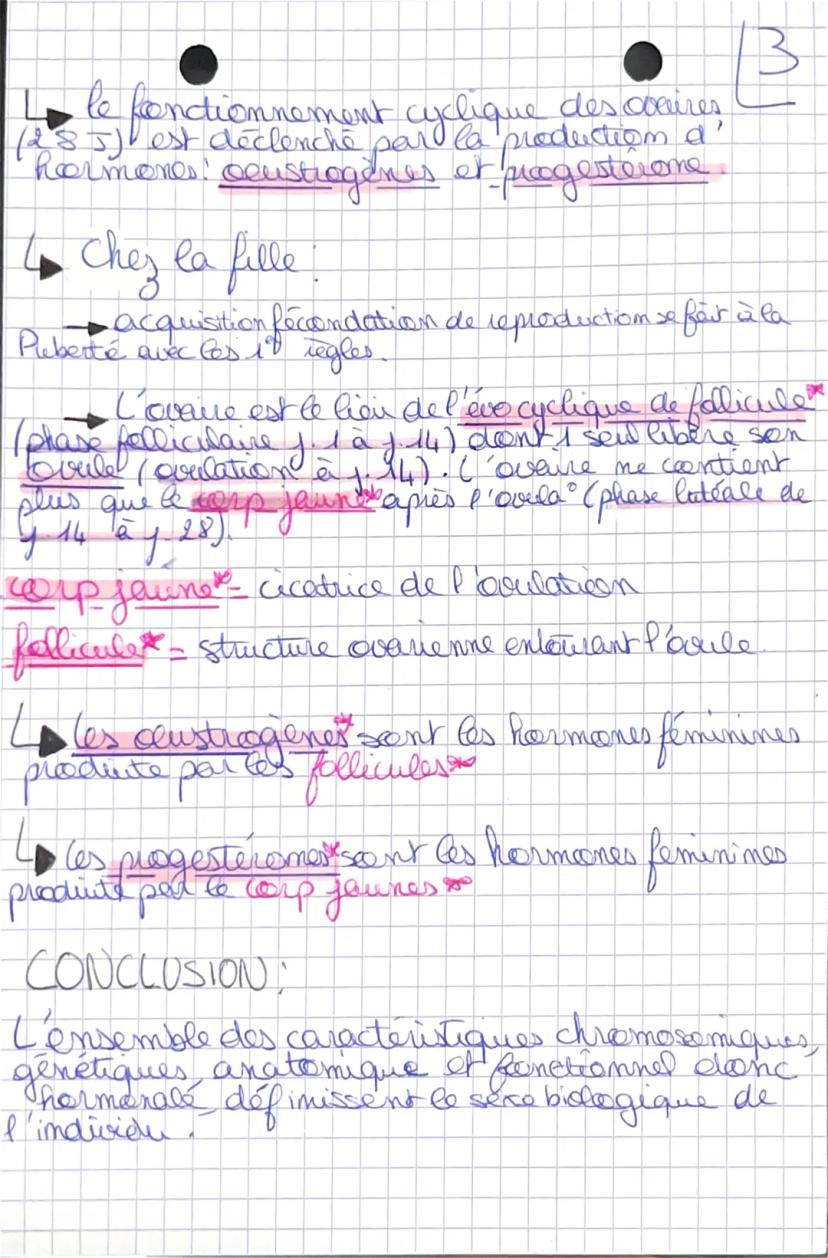 3
↳ le fonctionnement cyclique des ovaires
(28 J) est déclenché par la production d'
hormones: oeustrogènes et progestérone.
↳ Chez la fille :
→ acquisition fécondation de reproduction se fait à la
Puberté avec les 1º règles.
→ L'ovaire est le lieu de l'évo cyclique de follicule*
(phase folliculaire j.1 à j.14) dont 1 seul libère son
ovule (ovulation à j.14). L'ovaire ne contient
plus que le corp jaune* après l'ovulaº (phase lutéale de
j 14 à j.28).
corp jaune* = cicatrice de l'ovulation
follicule* = structure ovarienne entourant l'ovule
↳ les oeustrogènes* sont les hormones féminines
produite par les follicules*
↳ les progestérones* sont les hormones feminines
produite par le corp jaunes*
CONCLUSION :
L'ensemble des caractéristiques chromosomiques,
génétiques, anatomique et fonctionnel donc
hormonale, définissent le sexe biologique de
l'individu.